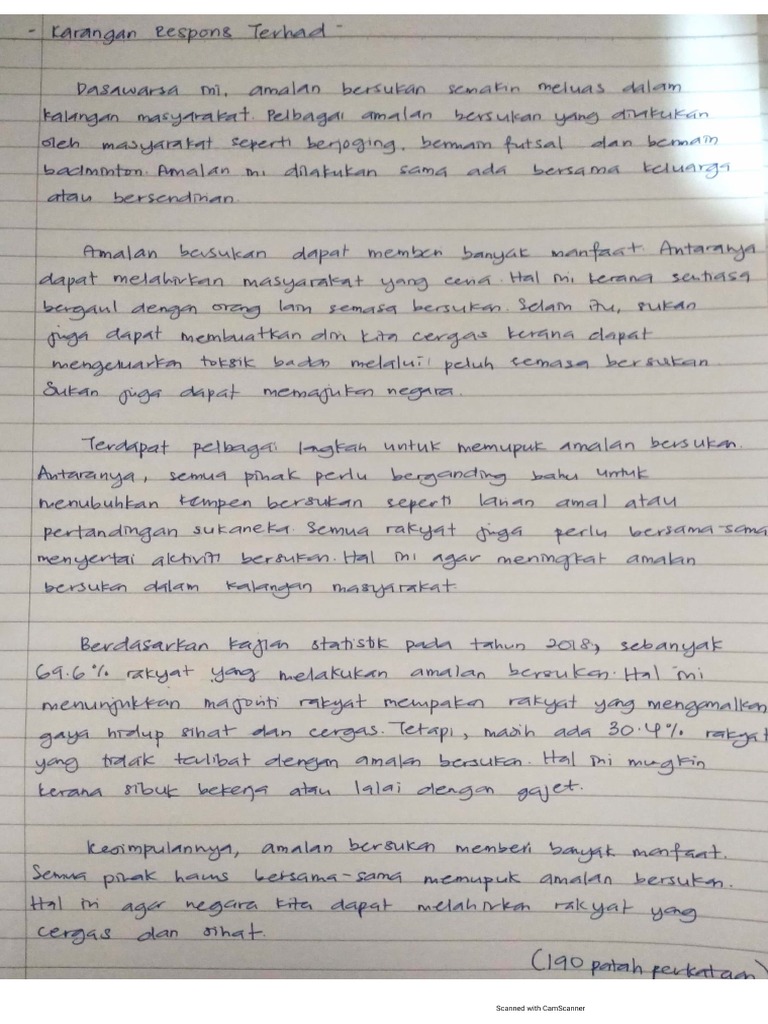 - Karangan Respons Terhad -
Dasawarsa ini, amalan bersukan semakin meluas dalam
kalangan masyarakat. Pelbagai amalan bersukan yang dilakukan
oleh masyarakat seperti berjoging, bermain futsal dan bermain
badminton. Amalan ini dilakukan sama ada bersama keluarga
atau bersendirian.
Amalan bersukan dapat memberi banyak manfaat. Antaranya
dapat melahirkan masyarakat yang ceria. Hal ini kerana sentiasa
bergaul dengan orang lain semasa bersukan. Selain itu, sukan
juga dapat membuatkan diri kita cergas kerana dapat
mengeluarkan toksik badan melalui peluh semasa bersukan.
Sukan juga dapat memajukan negara.
Terdapat pelbagai langkah untuk memupuk amalan bersukan.
Antaranya, semua pihak perlu berganding bahu untuk
menubuhkan kempen bersukan seperti larian amal atau
pertandingan sukaneka. Semua rakyat juga perlu bersama-sama
menyertai aktiviti bersukan. Hal ini agar meningkat amalan
bersukan dalam kalangan masyarakat.
Berdasarkan kajian statistik pada tahun 2018, sebanyak
69.6% rakyat yang melakukan amalan bersukan. Hal ini
menunjukkan majoriti rakyat merupakan rakyat yang mengamalkan
gaya hidup sihat dan cergas. Tetapi, masih ada 30.4% rakyat
yang tidak terlibat dengan amalan bersukan. Hal ini mungkin
kerana sibuk bekerja atau lalai dengan gajet.
Kesimpulannya, amalan bersukan memberi banyak manfaat.
Semua pihak harus bersama-sama memupuk amalan bersukan.
Hal ini agar negara kita dapat melahirkan rakyat yang
cergas dan sihat.
(190 patah perkataan)
Scanned with CamScanner